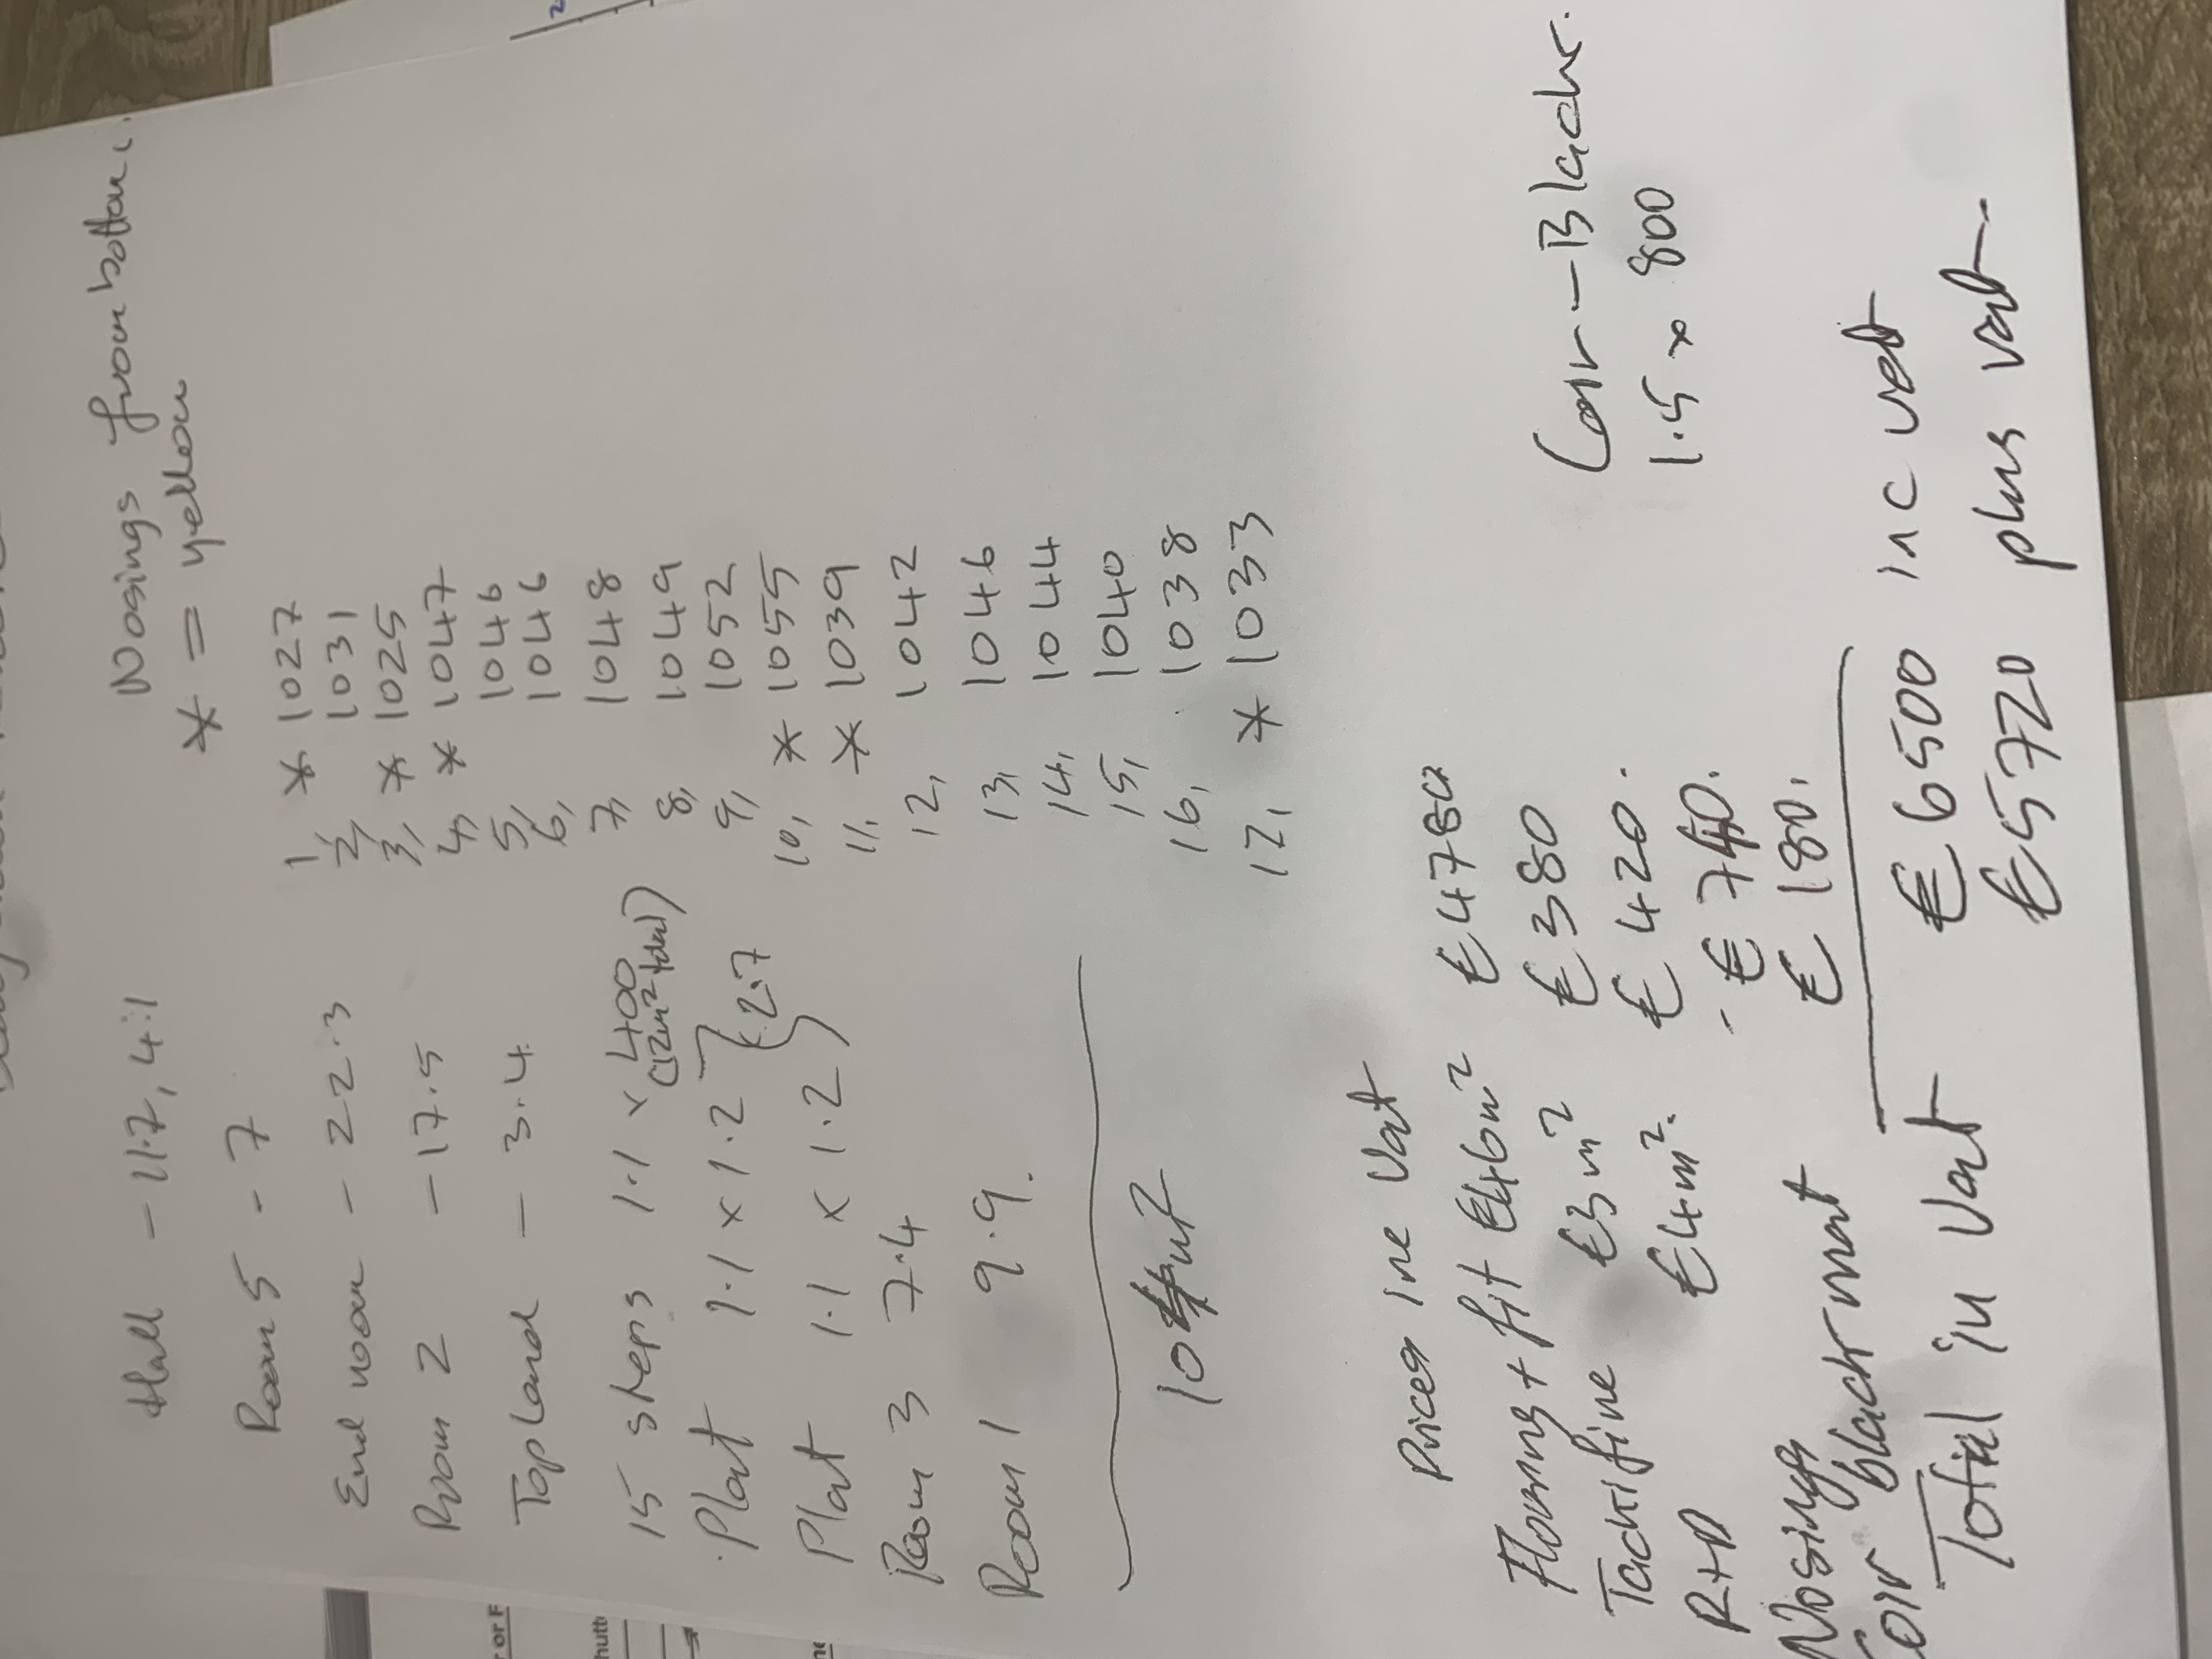 Nosings from bottom.
* = yellow
Hall - 11.7, 4.1
Room 5 - 7
End room - 22.3
Room 2 - 17.5
Top land - 3.4
15 steps 1.1 x 400
(12m² total)
Plat 1.1 x 1.2
Plat 1.1 x 1.2 } 2.7
Room 3 7.4
Room 1 9.9.
1, * 1027
2, 1031
3, * 1025
4, * 1047
5, 1046
6, 1046
7, 1048
8, 1049
9, 1052
10, * 1055
11, * 1039
12, 1042
13, 1046
14, 1044
15, 1040
16, 1038
17, * 1033
Prices inc Vat
Flooring + fit €46m² €4780
Tackifine €3m² €380
R+D €4m². €420.
Nosings - €740.
Coir black mat €180.
Total in Vat €6500 inc vat
€5720 plus vat
Coir - Black.
1.5 x 800
or F
hutt